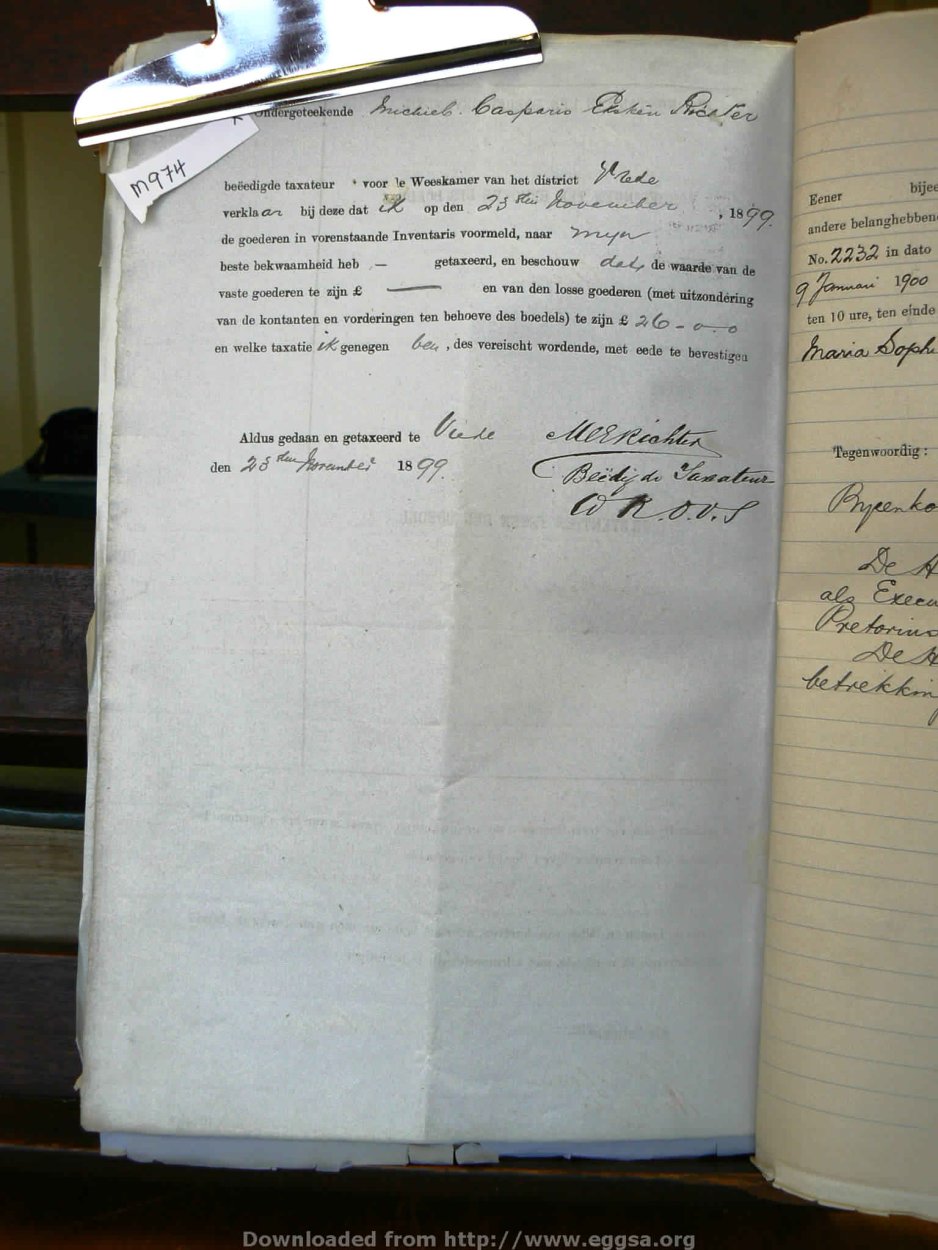 Ondergeteekende Michiel Casparis Richter
m974
beëedigde taxateur voor de Weeskamer van het district Vrede
verklaar bij deze dat ik op den 23sten November, 1899.
de goederen in vorenstaande Inventaris voormeld, naar myn
beste bekwaamheid heb — getaxeerd, en beschouw dat de waarde van de
vaste goederen te zijn £ —— en van den losse goederen (met uitzondering
van de kontanten en vorderingen ten behoeve des boedels) te zijn £ 26-0-0
en welke taxatie ik genegen ben, des vereischt wordende, met eede te bevestigen
Aldus gedaan en getaxeerd te Vrede
den 23sten November 1899.
MCERichter
Beëdigde Taxateur
W K. O. V. S
Eener bijee
andere belanghebben
No. 2232 in dato
9 Januari 1900
ten 10 ure, ten einde
Maria Soph
Tegenwoordig:
De H
als Execu
Pretorius
De H
betrekkin
Downloaded from http://www.eggsa.org